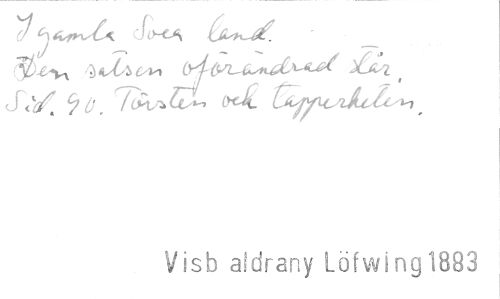 I gamla Svea land.
Den satsen oförändrad står.
Sid. 90. Törsten och tapperheten.
Visb aldrany Löfwing 1883